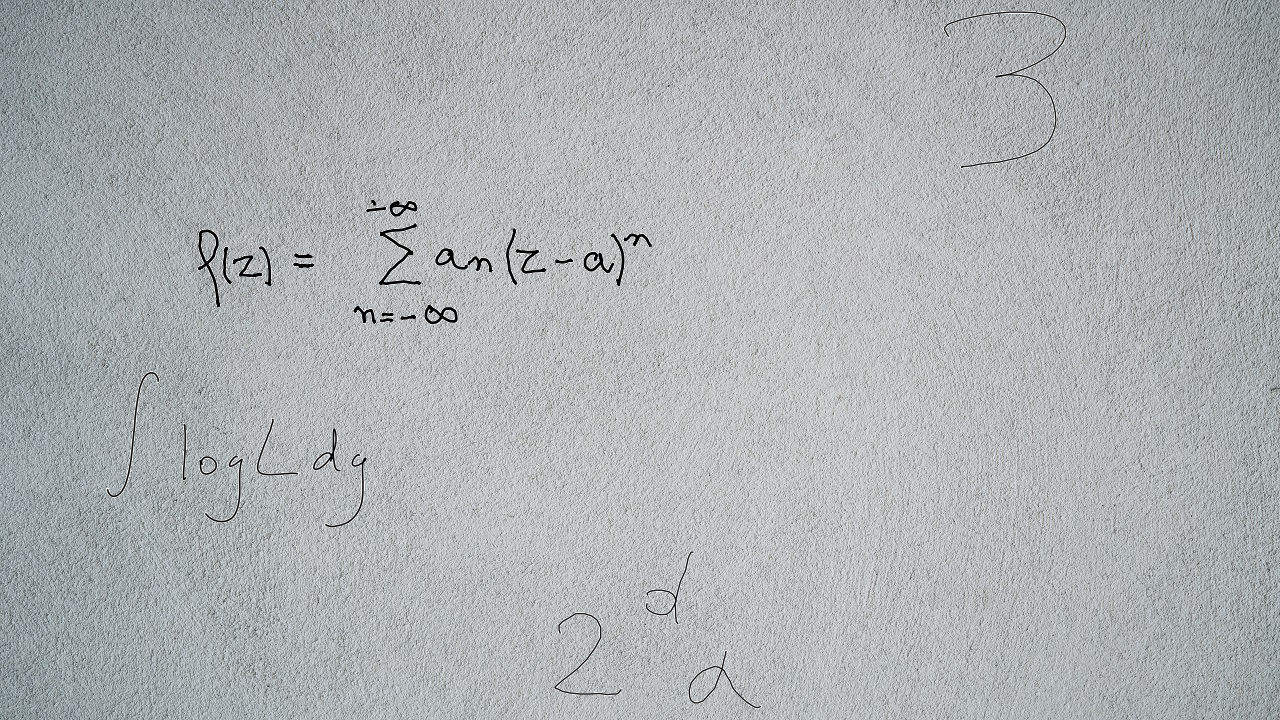 3
f(z) = \sum_{n=-\infty}^{-\infty} a_n (z-a)^n
\int \log L dg
2^d \alpha